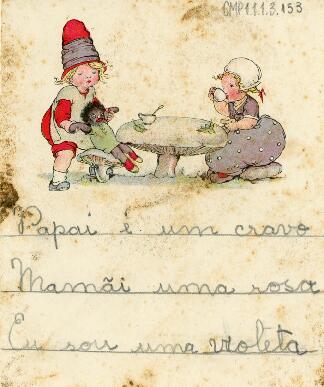 CMP.1.1.3.153
Papai é um cravo
Mamãi uma rosa
Eu sou uma violeta